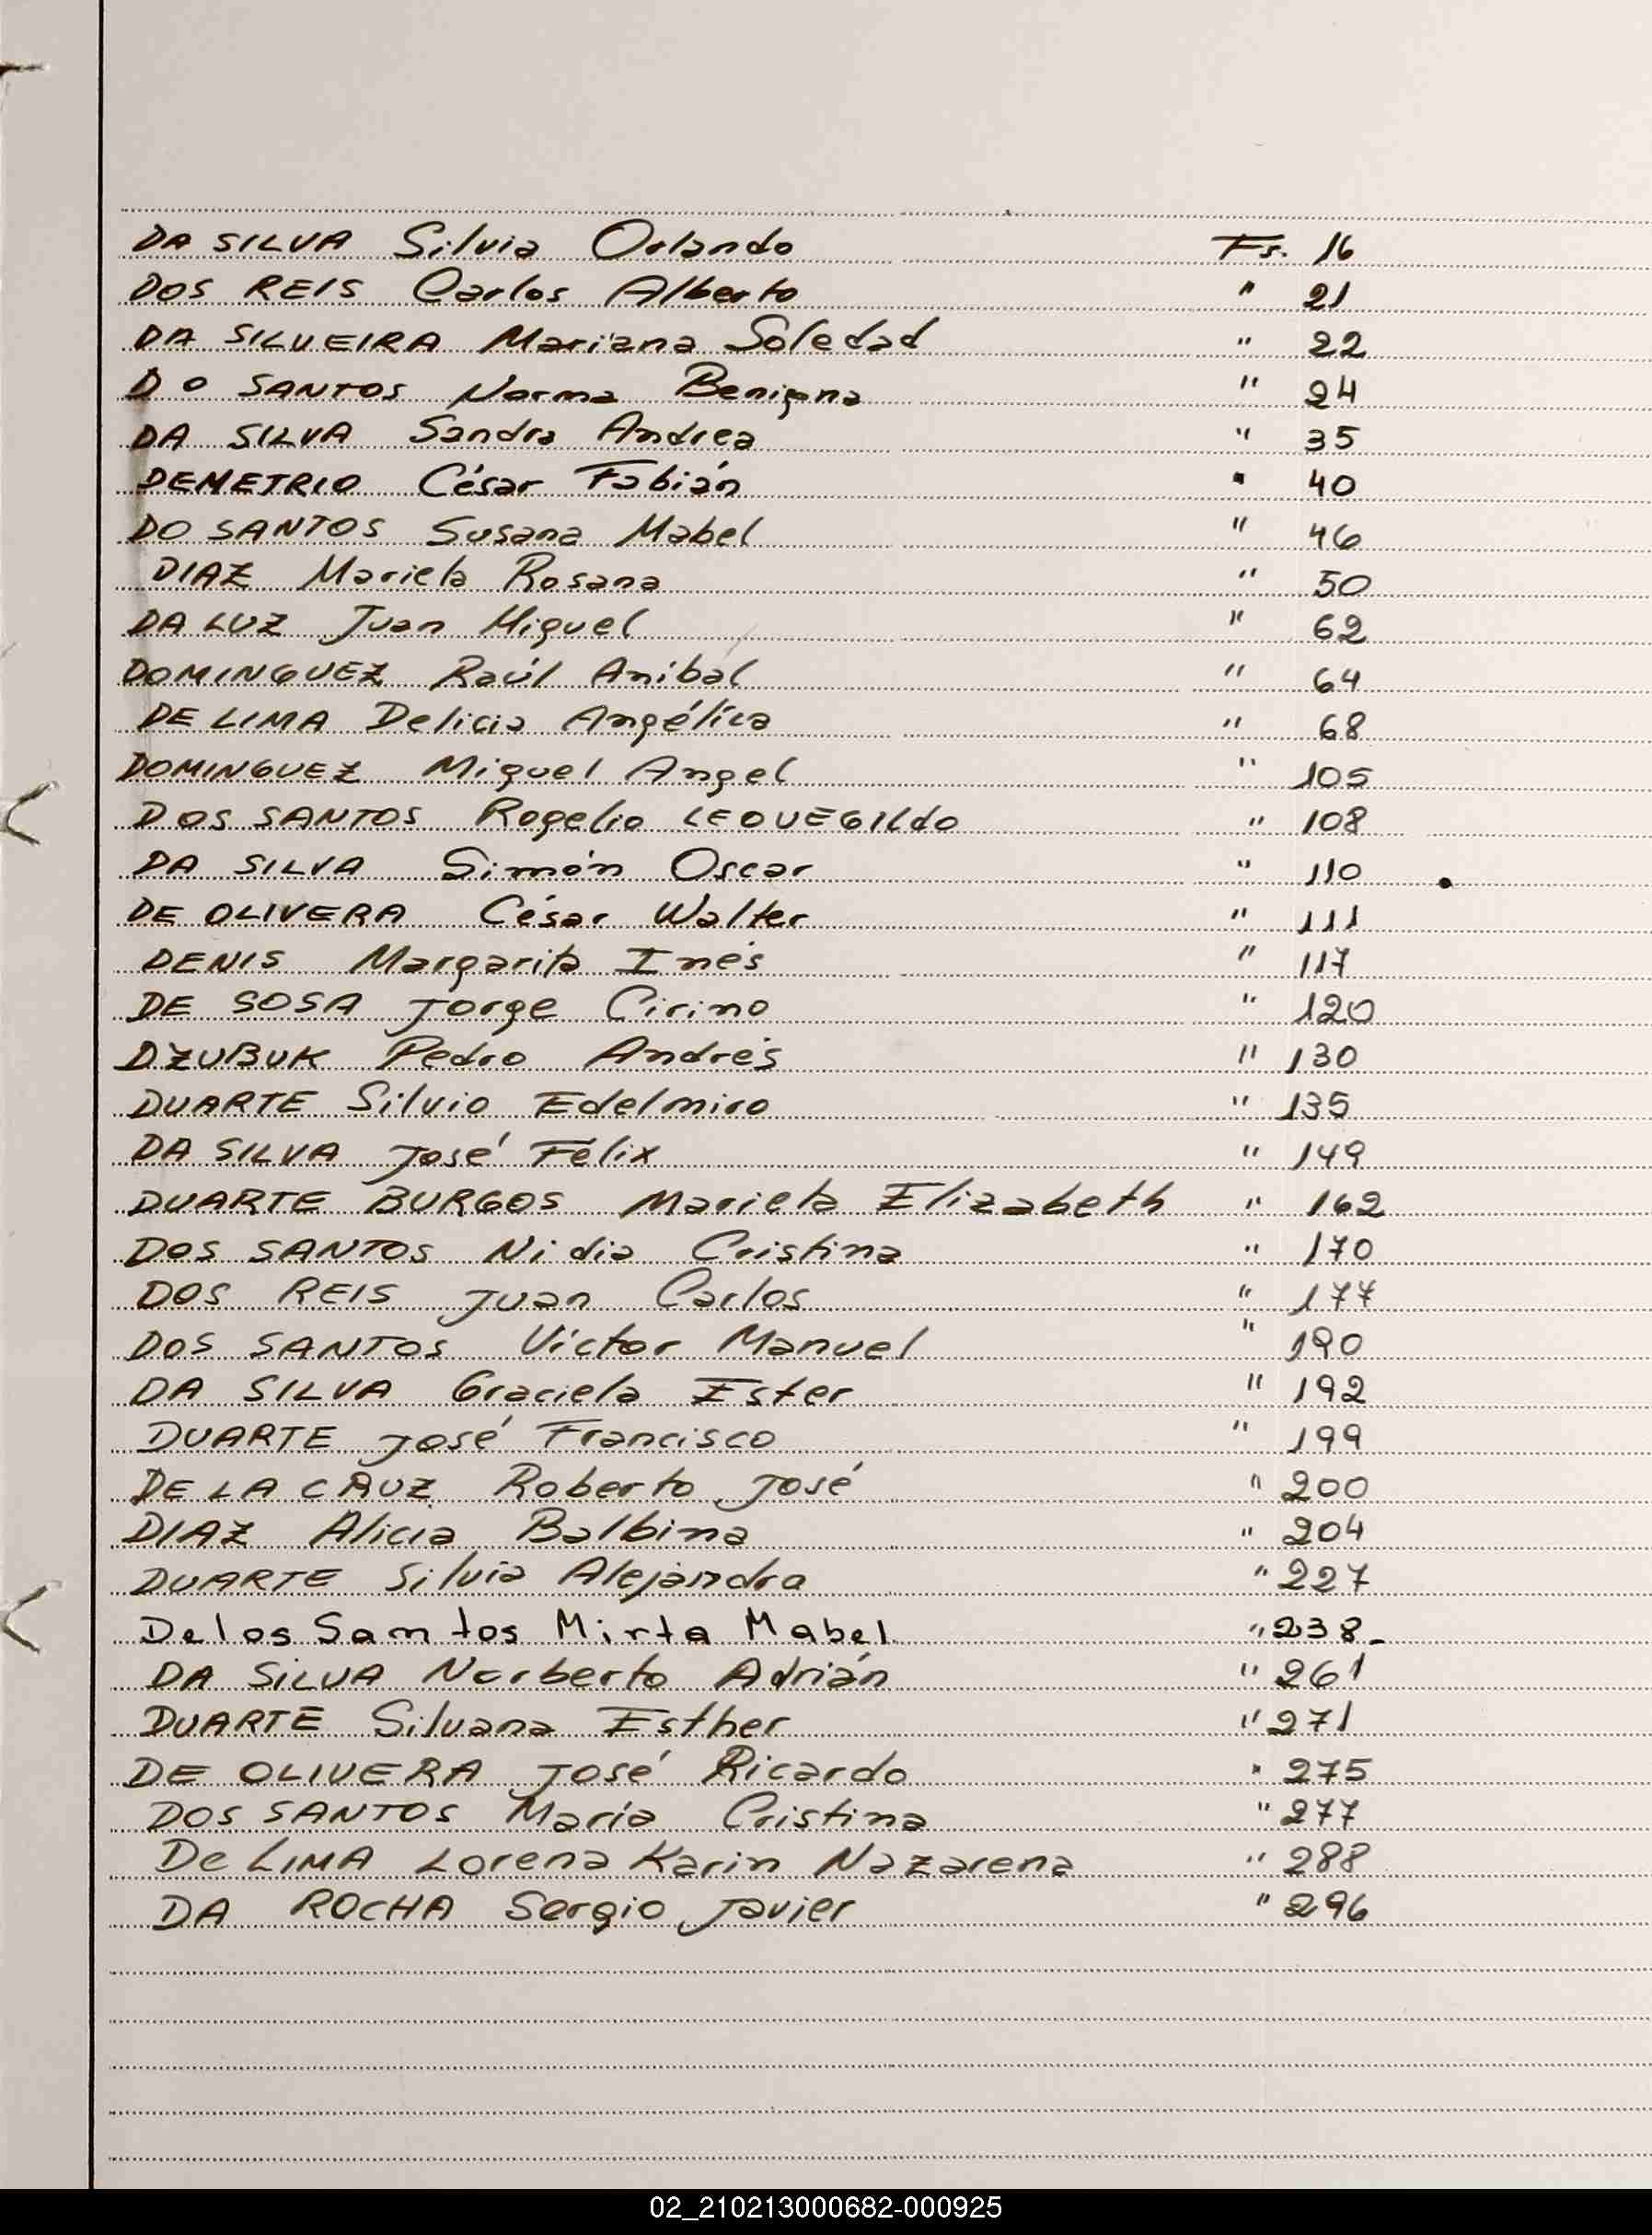 DA SILVA Silvia Orlando Fs. 16
DOS REIS Carlos Alberto " 21
DA SILVEIRA Mariana Soledad " 22
DO SANTOS Norma Benigna " 24
DA SILVA Sandra Andrea " 35
DEMETRIO César Fabián " 40
DO SANTOS Susana Mabel " 46
DIAZ Mariela Rosana " 50
DA LUZ Juan Miguel " 62
DOMINGUEZ Raúl Aníbal " 64
DE LIMA Delicia Angélica " 68
DOMINGUEZ Miguel Angel " 105
DOS SANTOS Rogelio LEOVEGILdo " 108
DA SILVA Simón Oscar " 110
DE OLIVERA César Walter " 111
DENIS Margarita Inés " 117
DE SOSA Jorge Cirino " 120
DZUBUK Pedro Andrés " 130
DUARTE Silvio Edelmiro " 135
DA SILVA José Félix " 149
DUARTE BURGOS Mariela Elizabeth " 162
DOS SANTOS Nidia Cristina " 170
DOS REIS Juan Carlos " 177
DOS SANTOS Víctor Manuel " 190
DA SILVA Graciela Ester " 192
DUARTE José Francisco " 199
DE LA CRUZ Roberto José " 200
DIAZ Alicia Balbina " 204
DUARTE Silvia Alejandra " 227
Delos Santos Mirta Mabel " 238-
DA SILVA Norberto Adrián " 261
DUARTE Silvana Esther " 271
DE OLIVERA José Ricardo " 275
DOS SANTOS María Cristina " 277
De LIMA Lorena Karin Nazarena " 288
DA ROCHA Sergio Javier " 296
02_210213000682-000925